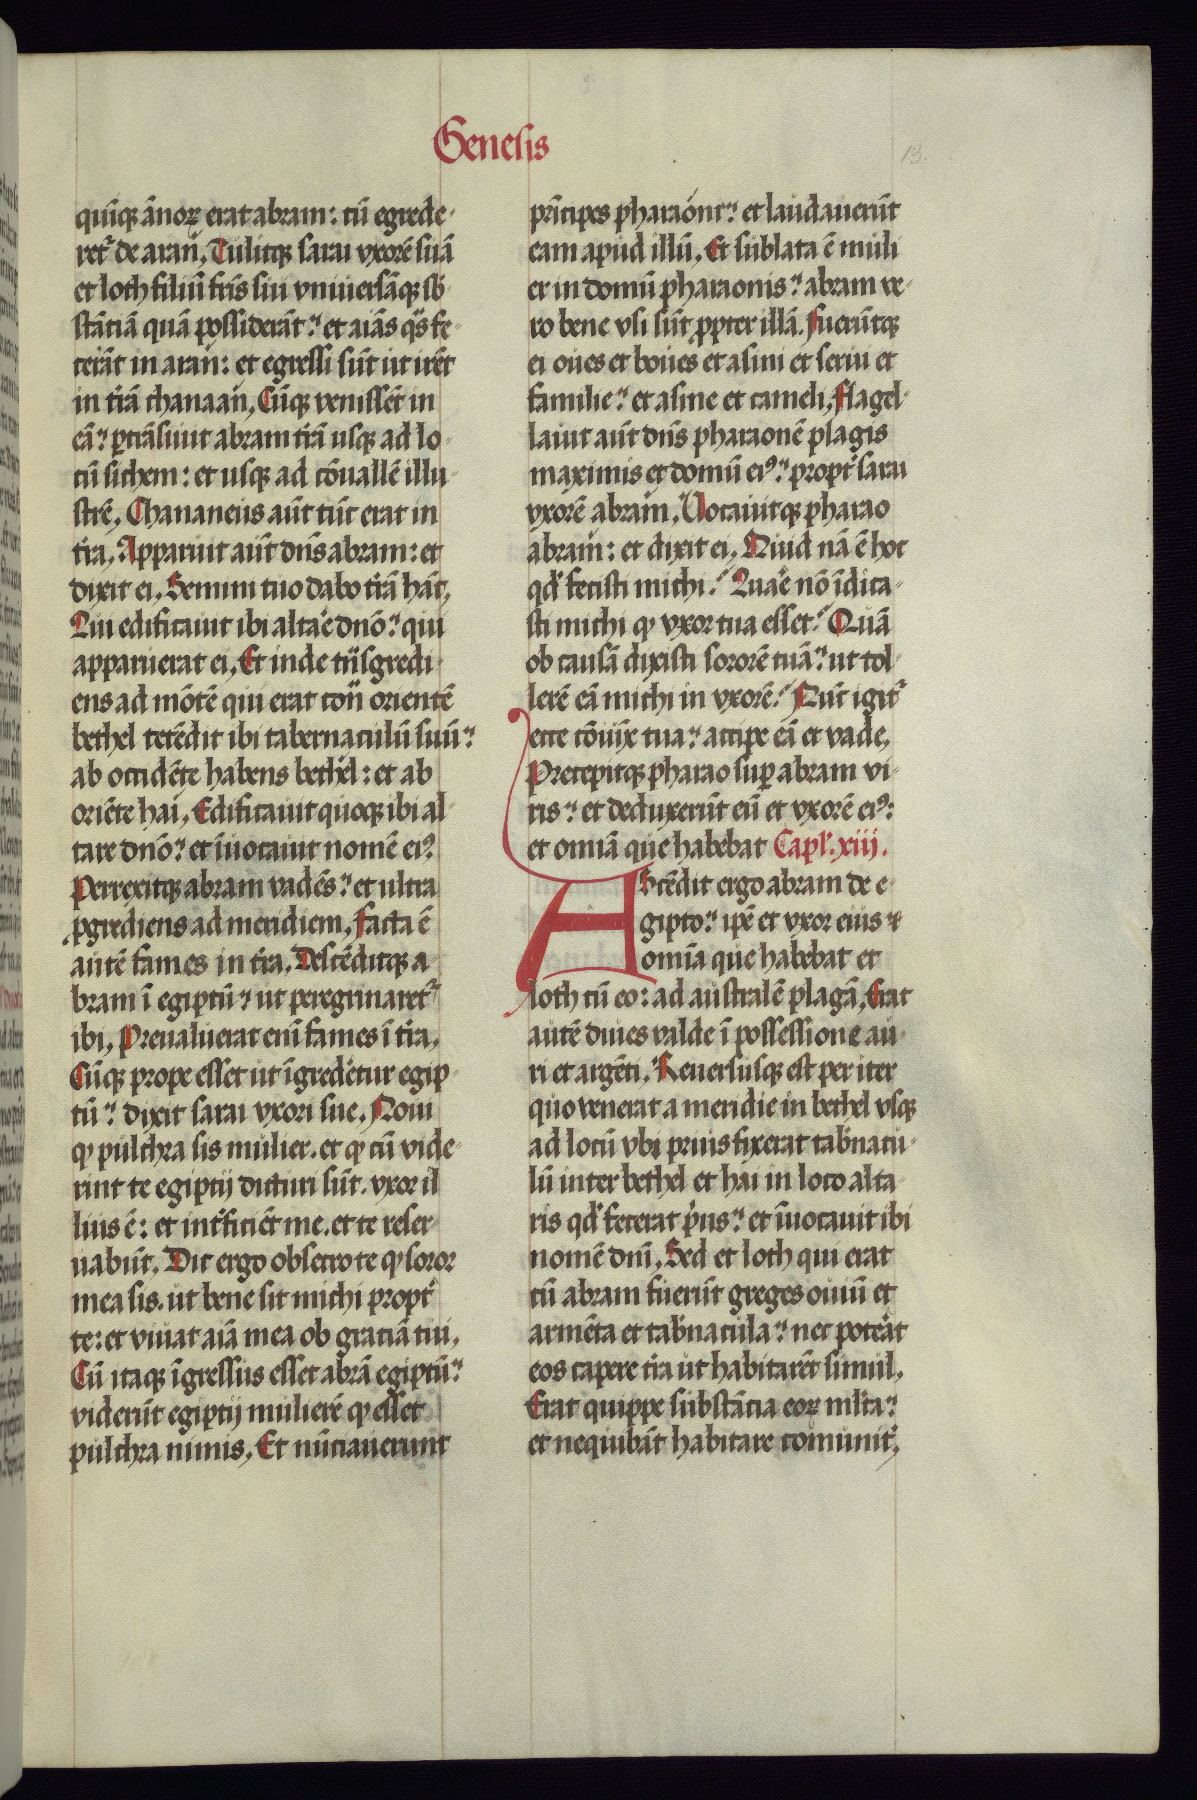 Genesis
13.
quīqꝫ ānoꝝ erat abram: cū egrede-
ret᷑ de aran. Tulitqꝫ sarai vxorē suā
et loth filiū fr̄is sui vniuersāqꝫ sb-
stātiā quā possiderāt: et aīas qͣs fe-
cerāt in aran: et egressi sūt ut irēt
in t̄rā chanaan. Cūqꝫ venissēt in
eā: ꝑtrāsiuit abram t̄rā usqꝫ ad lo-
cū sichem: et usqꝫ ad cōuallē illu-
strē. Chananeus aūt tūc erat in
t̄ra. Apparuit aūt dn̄s abram: et
dixit ei. Semini tuo dabo t̄rā hāc.
Qui edificauit ibi altaꝛe dnō: qui
apparuerat ei. Et inde trāsgredi-
ens ad mōtē qui erat cont̄ orientē
bethel tetēdit ibi tabernaculū suū:
ab occidēte habens bethel: et ab
oriēte hai. Edificauit quoqꝫ ibi al-
tare dnō: et īuocauit nomē eiꝰ
Perrexitqꝫ abram vadēs: et ultra
ꝓgrediens ad meridiem. Facta ē
autē fames in t̄ra. Descēditqꝫ a-
bram ī egiptū: ut peregrinaret᷑
ibi. Preualuerat eni᷑ fames ī t̄ra.
Cūqꝫ prope esset ut īgredetur egip-
tū: dixit sarai vxori sue. Noui
ꝙ pulchra sis mulier. et ꝙ cū vide-
rint te egiptij dicturi sūt. vxor il
lius ē: et int̄ficiēt me. et te reser-
uabūt. Dic ergo obsecro te ꝙ soror
mea sis. ut bene sit michi propt̄
te: et viuat aīa mea ob gratiā tui.
Cū itaqꝫ īgressus esset abrā egiptū:
viderūt egiptij mulierē ꝙ esset
pulchra nimis. Et nūciauerunt
prīcipes pharaoni: et laudauerūt
eam apud illū. Et sublata ē muli
er in domū pharaonis: abram ve-
ro bene vsi sūt ꝓpter illā. Fuerūtqꝫ
ei oues et boues et asini et serui et
familie: et asine et cameli. Flagel-
lauit aūt dn̄s pharaonē plagis
maximis et domū eiꝰ: propt̄ sarai
vxorē abram. Vocauitqꝫ pharao
abram: et dixit ei. Quid nā ē hoc
qd̄ fecisti michi? Quaꝛe nō īdica-
sti michi ꝙ vxor tua esset? Quā
ob causā dixisti sororē tuā: ut tol-
lerē eā michi in vxorē? Nūc igit᷑
ecce cōiūx tua: accipe eā et vade.
Precepitqꝫ pharao suꝑ abram vi-
ris: et deduxerūt eū et vxorē eiꝰ:
et omīa que habebat Capl̄. xiij.
Ascēdit ergo abram de e-
gipto: ip̄e et vxor eius ⁊
omīa que habebat et
loth cū eo: ad australē plagā. Erat
autē diues valde ī possessione au-
ri et argēti. Reuersusqꝫ est per iter
quo venerat a meridie in bethel vsqꝫ
ad locū vbi prius fixerat tab̄nacu-
lū inter bethel et hai in loco alta-
ris qd̄ fecerat pͥus: et īuocauit ibi
nomē dn̄i. Sed et loth qui erat
cū abram fuerūt greges ouiū et
armēta et tab̄nacula: nec poteāt
eos capere t̄ra ut habitarēt simul.
Erat quippe substācia eoꝝ ml̄ta:
et nequibāt habitare comunit̄.